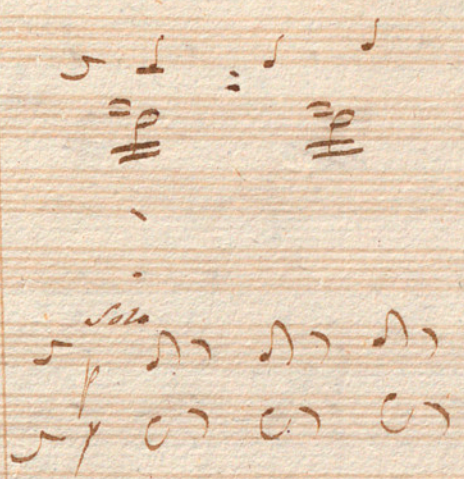 Solo
p